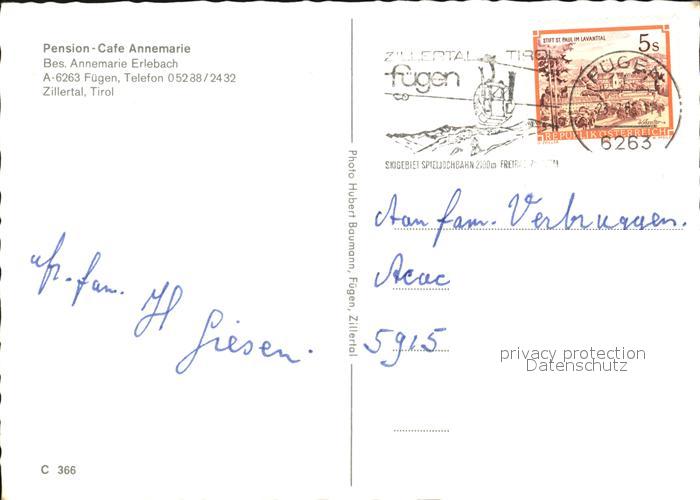 Pension - Cafe Annemarie
Bes. Annemarie Erlebach
A-6263 Fügen, Telefon 05288/2432
Zillertal, Tirol
ZILLERTAL TIROL
fügen
SKIGEBIET SPIELJOCHBAHN 2100m
STIFT ST. PAUL IM LAVANTTAL
5s
REPUBLIK ÖSTERREICH
FÜGEN
6263
Aan fam. Verbruggen.
5915
afz. fam.
H Giesen.
Photo Hubert Baumann, Fügen, Zillertal
privacy protection
Datenschutz
C 366